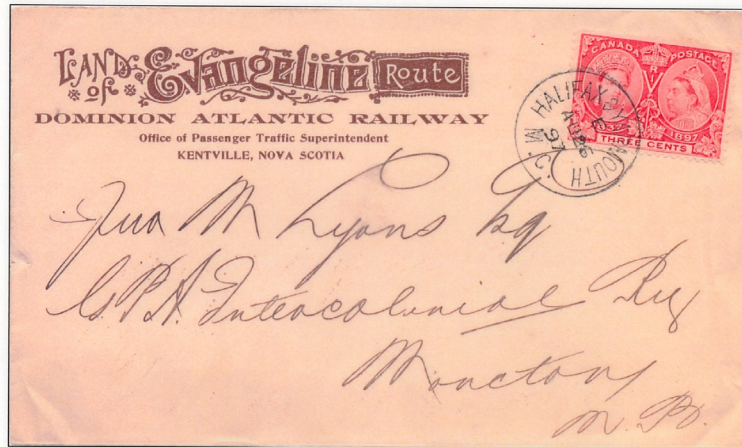 LAND OF Evangeline Route
DOMINION ATLANTIC RAILWAY
Office of Passenger Traffic Superintendent
KENTVILLE, NOVA SCOTIA
CANADA POSTAGE
1897
THREE CENTS
HALIFAX MOUTH M.C.
97
Jno M Lyons Esq
G.P.A. Intercolonial Ry
Moncton
N.B.